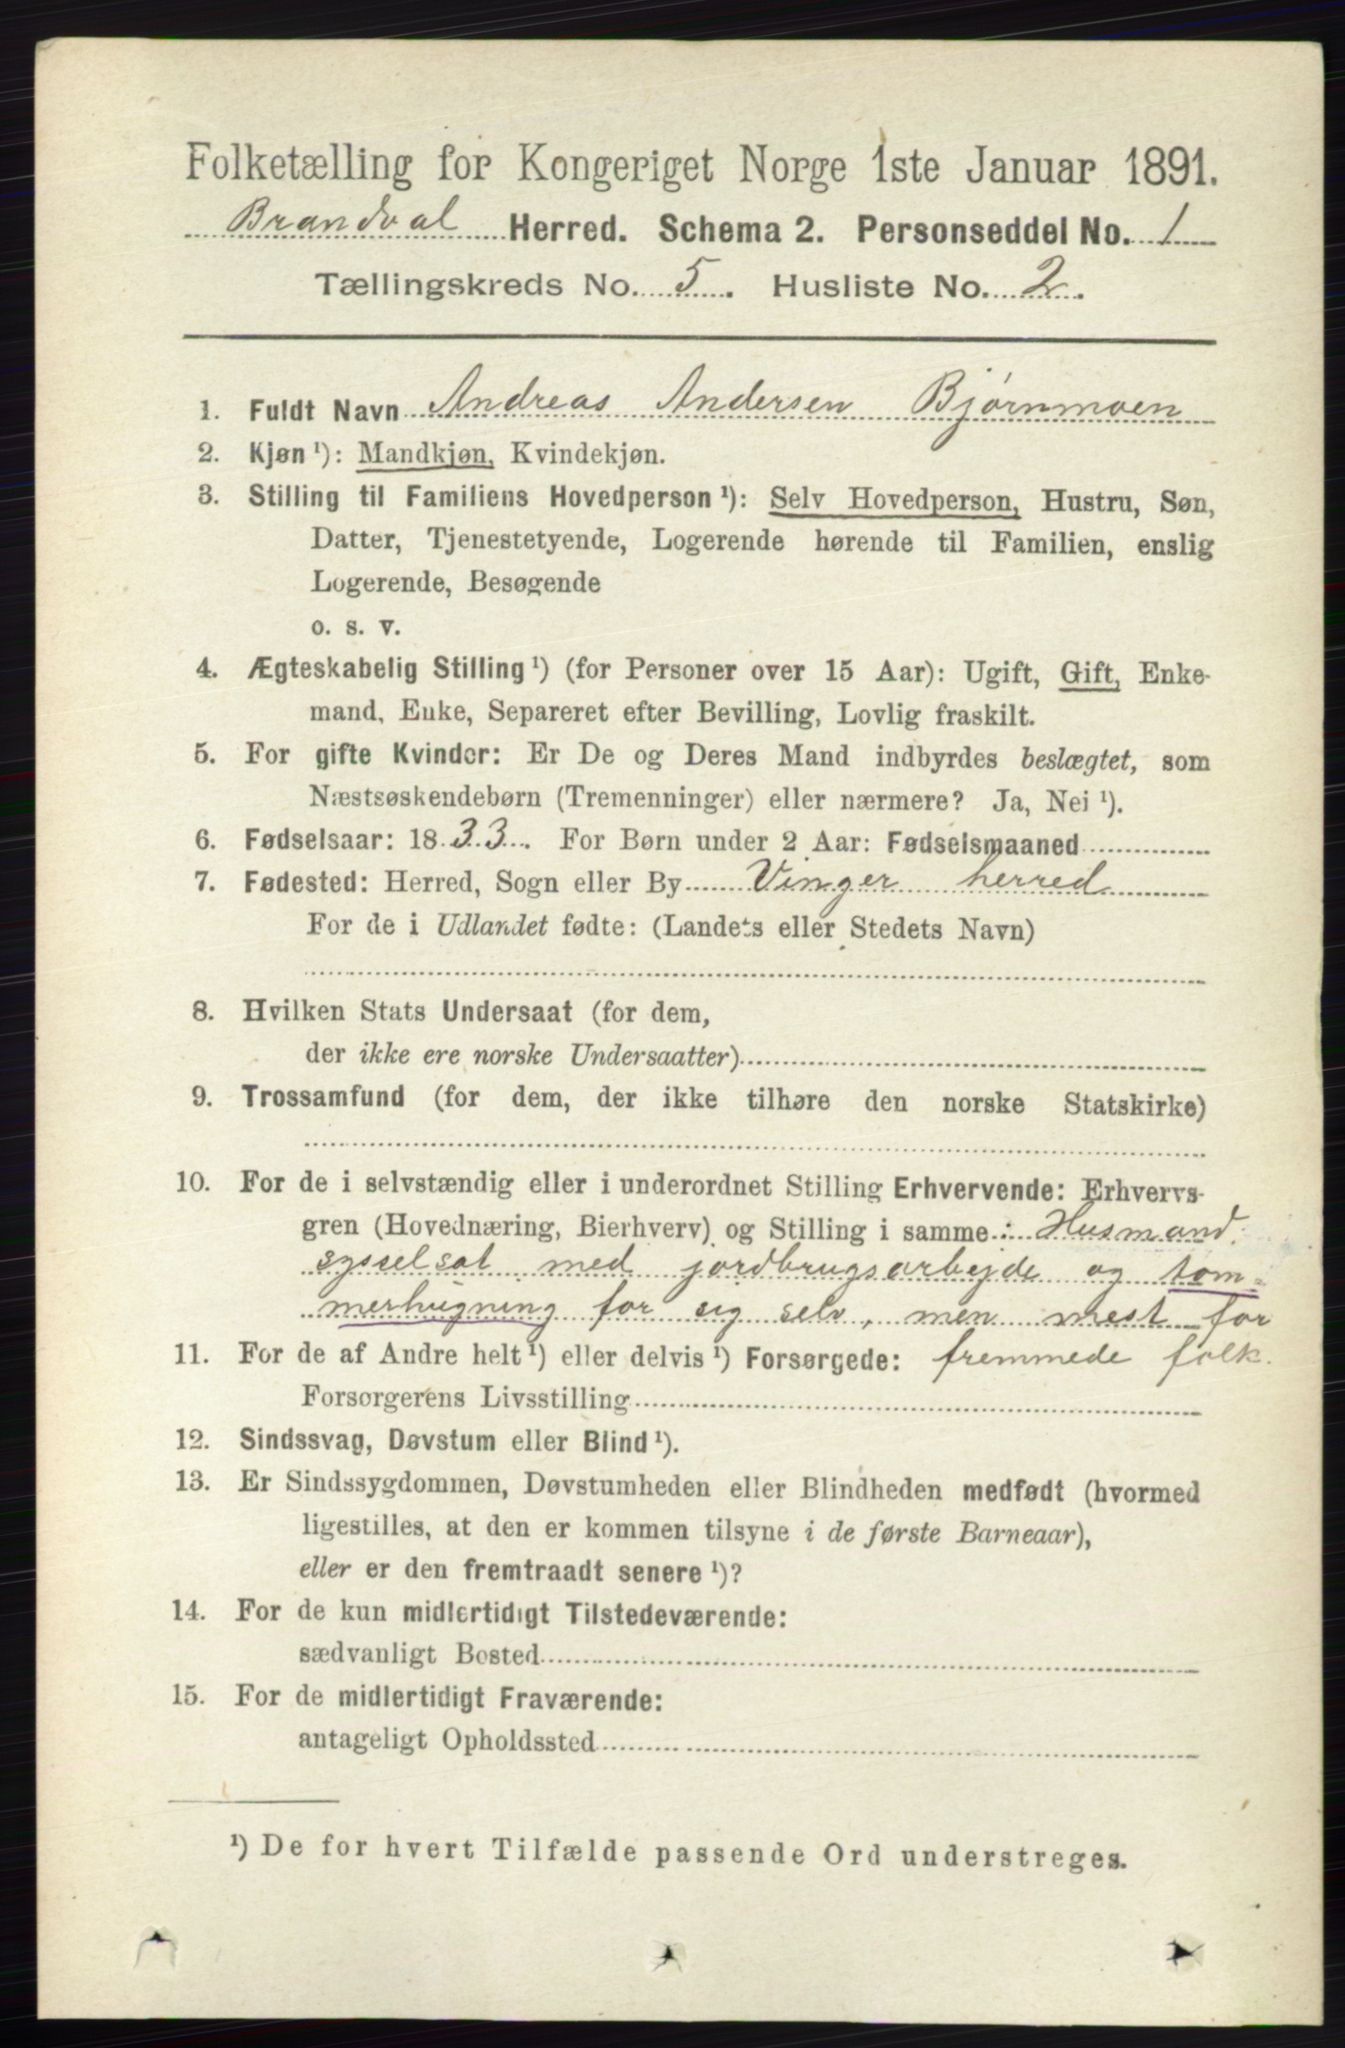 Folketælling for Kongeriget Norge 1ste Januar 1891.
Brandval Herred. Schema 2. Personseddel No. 1
Tællingskreds No. 5. Husliste No. 2.
1. Fuldt Navn Andreas Andersen Bjørnmoen
2. Kjøn ¹): Mandkjøn, Kvindekjøn.
3. Stilling til Familiens Hovedperson ¹): Selv Hovedperson, Hustru, Søn,
Datter, Tjenestetyende, Logerende hørende til Familien, enslig
Logerende, Besøgende
o. s. v.
4. Ægteskabelig Stilling ¹) (for Personer over 15 Aar): Ugift, Gift, Enke-
mand, Enke, Separeret efter Bevilling, Lovlig fraskilt.
5. For gifte Kvinder: Er De og Deres Mand indbyrdes beslægtet, som
Næstsøskendebørn (Tremenninger) eller nærmere? Ja, Nei ¹).
6. Fødselsaar: 1833. For Børn under 2 Aar: Fødselsmaaned
7. Fødested: Herred, Sogn eller By Vinger herred
For de i Udlandet fødte: (Landets eller Stedets Navn)
8. Hvilken Stats Undersaat (for dem,
der ikke ere norske Undersaatter)
9. Trossamfund (for dem, der ikke tilhøre den norske Statskirke)
10. For de i selvstændig eller i underordnet Stilling Erhvervende: Erhvervs-
gren (Hovednæring, Bierhverv) og Stilling i samme: Husmand
sysselsat med jordbrugsarbejde og tøm-
merhugning for sig selv, men mest for
11. For de af Andre helt ¹) eller delvis ¹) Forsørgede: fremmede folk.
Forsørgerens Livsstilling
12. Sindssvag, Døvstum eller Blind ¹).
13. Er Sindssygdommen, Døvstumheden eller Blindheden medfødt (hvormed
ligestilles, at den er kommen tilsyne i de første Barneaar),
eller er den fremtraadt senere ¹)?
14. For de kun midlertidigt Tilstedeværende:
sædvanligt Bosted
15. For de midlertidigt Fraværende:
antageligt Opholdssted
¹) De for hvert Tilfælde passende Ord understreges.